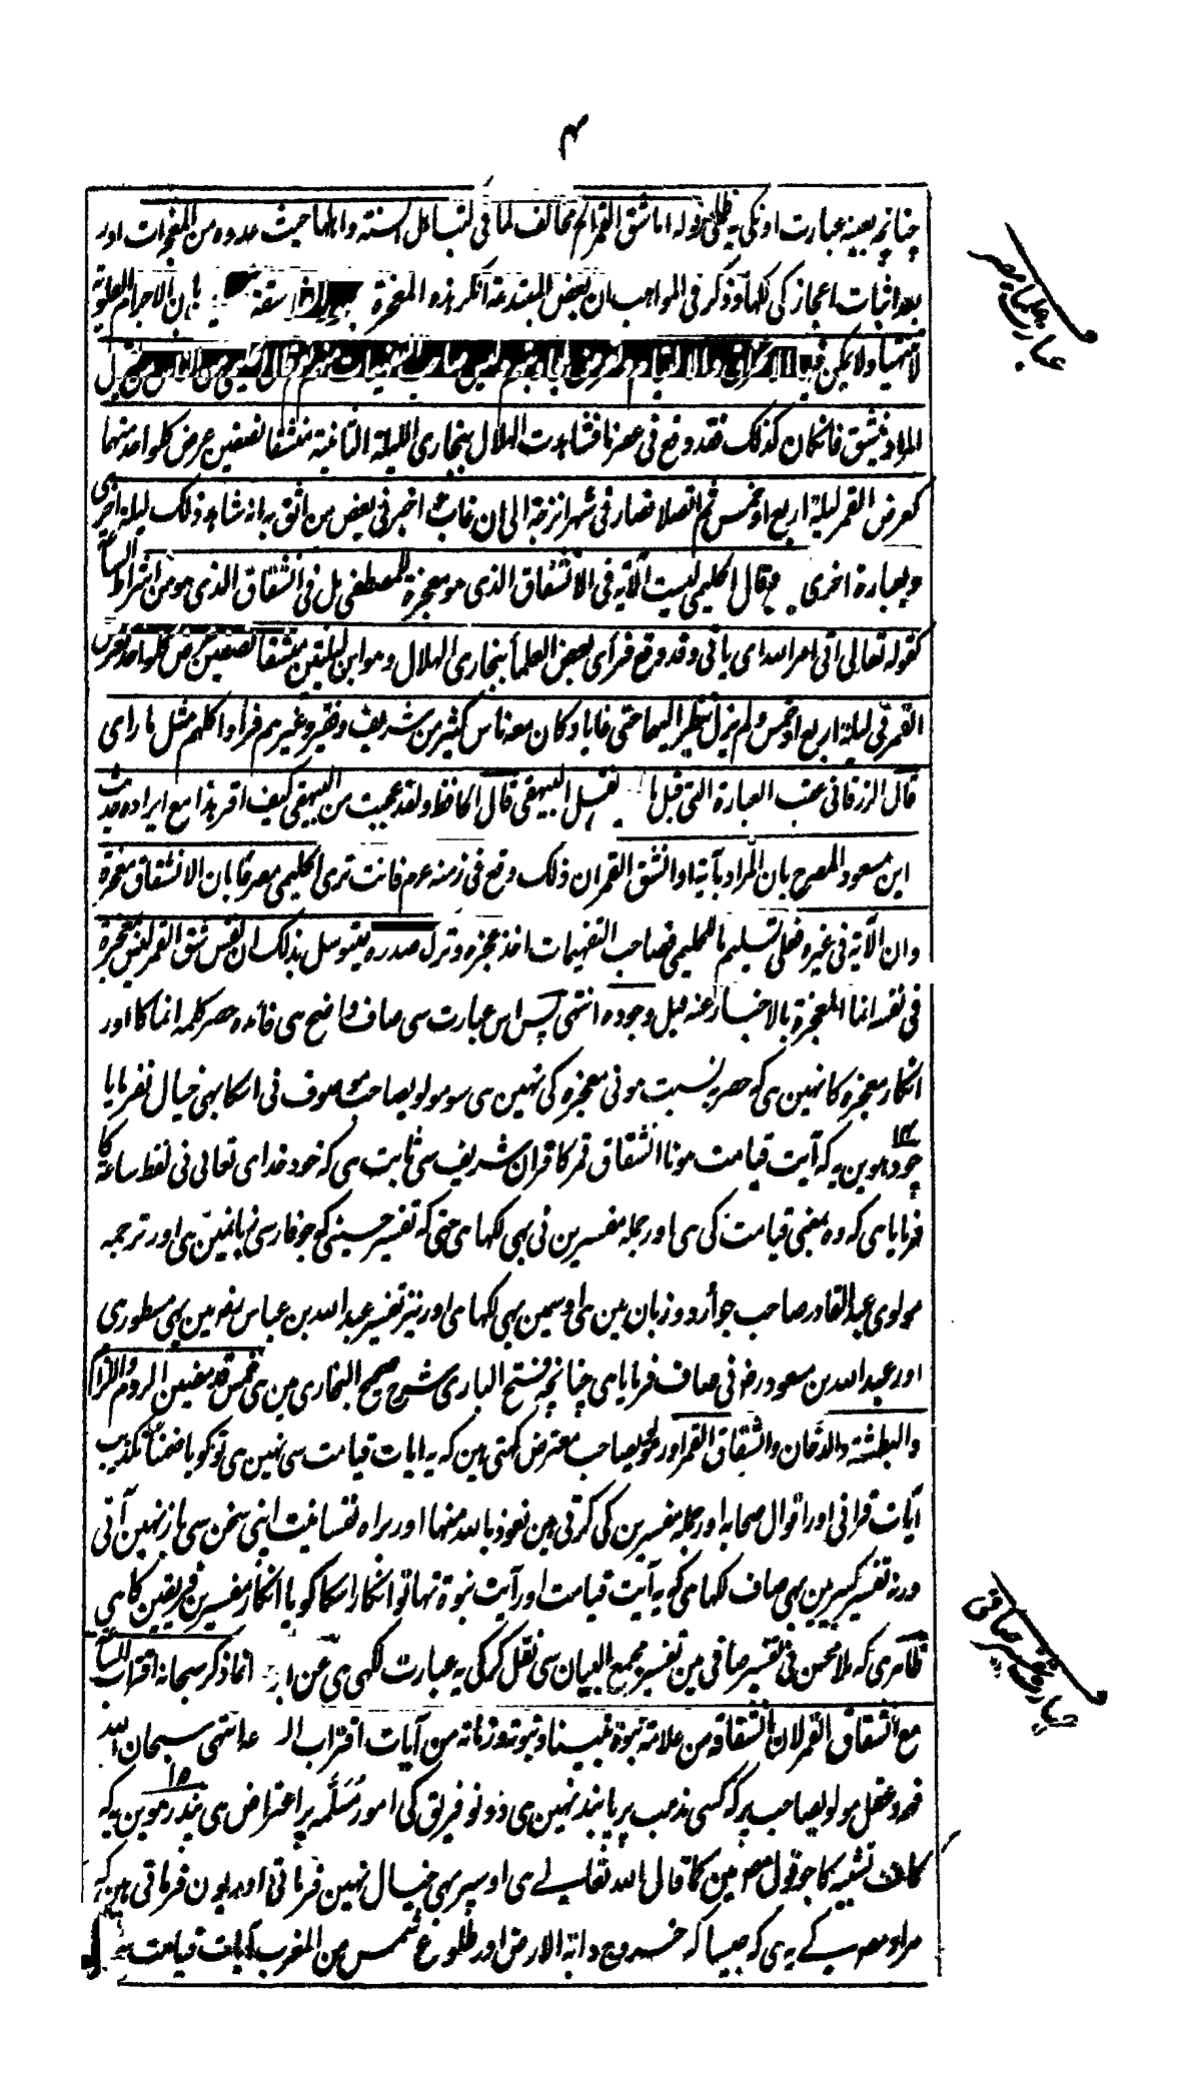 ۴
چنانچہ بعینہ عبارت اونکی یہ قولہ اما شق القمر الخ مخالف لما فی کتب اہل السنۃ والجماعۃ حیث عدوہ من المعجزات اور
بعد اثبات اعجاز کی لکھا وذکر فی المواہب ان بعض المبتدعۃ انکر ہذہ المعجزۃ بان الاجرام العلویۃ
لا تتہیا ولا یمکن فیہا الانخراق والالتیام قال الحلیمی من الناس من یقول
المراد ینشق فانکان کذلک فقد وقع فی عصرنا فشاہدت الہلال بنجاری اللیلۃ الثانیۃ منشقا نصفین عرض کلواحد منہما
کعرض القمر لیلۃ اربع او خمس ثم اتصلا فصار فی شہر اترجۃ الی ان غاب اخبرنی بعض من اثق بہ انہ شاہد ذلک لیلۃ اخری
وبعبارۃ اخری قال الحلیمی لیست الآیۃ فی الانشقاق الذی ہو معجزۃ المصطفی بل فی انشقاق الذی ہو من اشراط الساعۃ
کقولہ تعالی اتی امر اللہ ای یاتی وقد وقع فرأی بعض العلمأ بنجاری الہلال وہو ابن لیلتین منشقا نصفین عرض کلواحد کعرض
القمر فی لیلۃ اربع او خمس ولم یزل ینظر الیہما حتی غابا وکان معہ ناس کثیر من شریف وفقیر وغیرہم فرأوا کلہم مثل ما رای
قال الزرقانی عقب العبارۃ التی قبل ہا نقل البیہقی قال الحافظ ولقد عجبت من البیہقی کیف اقر ہذا مع ایرادہ حدیث
ابن مسعود المصرح بان المراد بآیۃ وانشق القمر ان ذلک وقع فی زمنہ عم فانت تری الحلیمی معرفا بان الانشقاق معجزۃ
وان الآیۃ فی غیرہ فعلی تسلیم ما للحلیمی فصاحب التفہیمات اخذ عجزہ وترک صدرہ یتوسل بذلک ان نفس شق القمر لیس معجزۃ
فی نفسہ انما المعجزۃ بالاخبار عنہ قبل وجودہ انتہی پس اس عبارت سی صاف واضح ہی فائدہ حصر کلمہ انما کا اور
انکار معجزہ کا نہین ہی کہ حصر بہ نسبت ہونی معجزہ کی نہین ہی سو مولویصاحب موصوف نی اسکا بہی خیال نفرمایا
۱۴ چودہوین یہ کہ آیت قیامت ہونا انشقاق قمر کا قران شریف سی ثابت ہی کہ خود خدای تعالی نی لفظ ساعۃ کا
فرمایا ہی کہ وہ بمعنی قیامت کی ہی اور جملہ مفسرین نی بہی لکہا ہی حتی کہ تفسیر حسینی کہ جو فارسی زبانمین ہی اور ترجمہ
مولوی عبد القادر صاحب جو أردو زبان مین ہی اوسمین بہی لکہا ہی اور نیز تفسیر عبد اللہ بن عباس رض مین بہی مسطور ہی
اور عبد اللہ بن مسعود رض نی صاف فرمایا ہی چنانچہ فتح الباری شرح صحیح البخاری مین ہی خمس قد مضین الروم واللزام
والبطشۃ والدخان وانشقاق القمر اور مولویصاحب معترض کہتی ہین کہ یہ ایات قیامت سی نہین ہی تو گویا ضمنا تکذیب
آیات قرانی اور اقوال صحابہ اور جملہ مفسرین کی کرتی ہین نعوذ باللہ منہا اور براہ نفسانیت اپنی سخن سی باز نہین آتی
ورنہ تفسیر کبیر مین بہی صاف لکہا ہی کہ یہ آیت قیامت اور آیت نبوۃ تہا تو انکار اسکا گویا انکار مفسرین فریقین کا ہی
ظاہر ہی کہ ملا محسن نی تفسیر صافی مین تفسیر مجمع البیان سی نقل کرکی یہ عبارت لکہی ہی عن انما ذکر سبحانہ اقتراب الساعۃ
مع انشقاق القمر لان انشقاقہ من علامۃ نبوۃ نبینا ونبوتہ وزمانہ من آیات اقتراب الساعۃ انتہی سبحان اللہ
فہم وعقل مولویصاحب پر کہ کسی مذہب پر پابند نہین ہی دونو فریق کی امور مسلمہ پر اعتراض ہی ۱۵ پندرہوین یہ کہ
کاف تشبیہ کا جو قول معصومین کا کما قال اللہ تعالے ہی اوسپر بہی خیال نہین فرماتی اور یون فرماتی ہین کہ
مراد معصوم کے یہ ہی کہ جیسا کہ خروج دابۃ الارض اور طلوع شمس من المغرب آیات قیامت
عبارت
عبارت تفسیر صافی